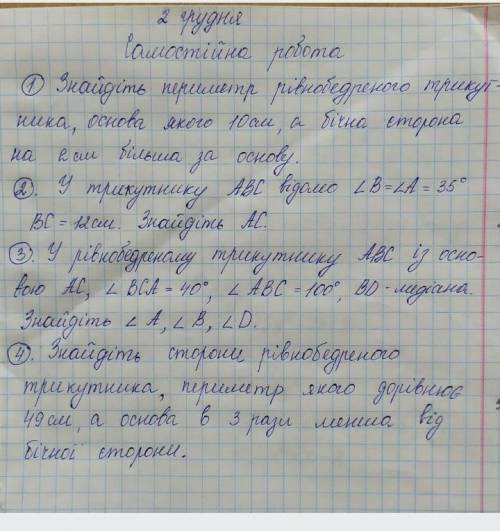 2 грудня
Самостійна робота
① Знайдіть периметр рівнобедреного трикут-
ника, основа якого 10см, а бічна сторона
на 2см більша за основу.
②. У трикутнику АВС відомо ∠В=∠А=35°
ВС=12см. Знайдіть АС.
③. У рівнобедреному трикутнику АВС із осно-
вою АС, ∠ВСА=40°, ∠АВС=100°, BD-медіана.
Знайдіть ∠А, ∠В, ∠D.
④. Знайдіть сторони рівнобедреного
трикутника, периметр якого дорівнює
49см, а основа в 3 рази менша від
бічної сторони.